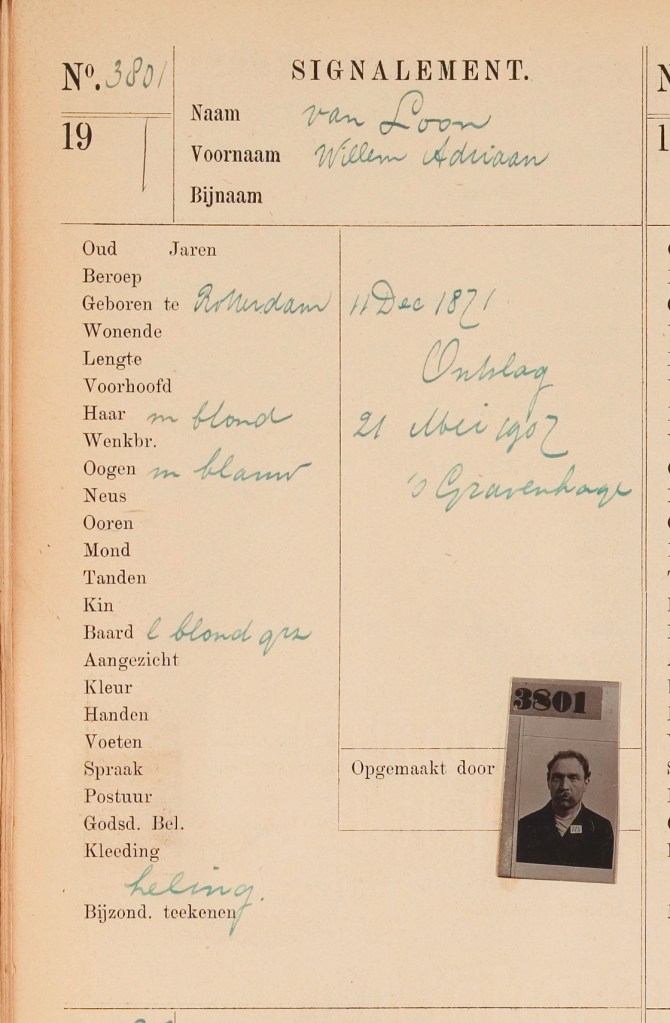 Nº. 3801
19
SIGNALEMENT.
Naam van Loon
Voornaam Willem Adriaan
Bijnaam
Oud Jaren
Beroep
Geboren te Rotterdam 11 Dec 1871
Wonende
Lengte
Ontslag
Voorhoofd
Haar m blond
21 Mei 1907
Wenkbr.
Oogen m blauw
's Gravenhage
Neus
Ooren
Mond
Tanden
Kin
Baard l blond grs
Aangezicht
Kleur
Handen
Voeten
Spraak
Postuur
Godsd. Bel.
Kleeding
heling.
Bijzond. teekenen
Opgemaakt door
3801